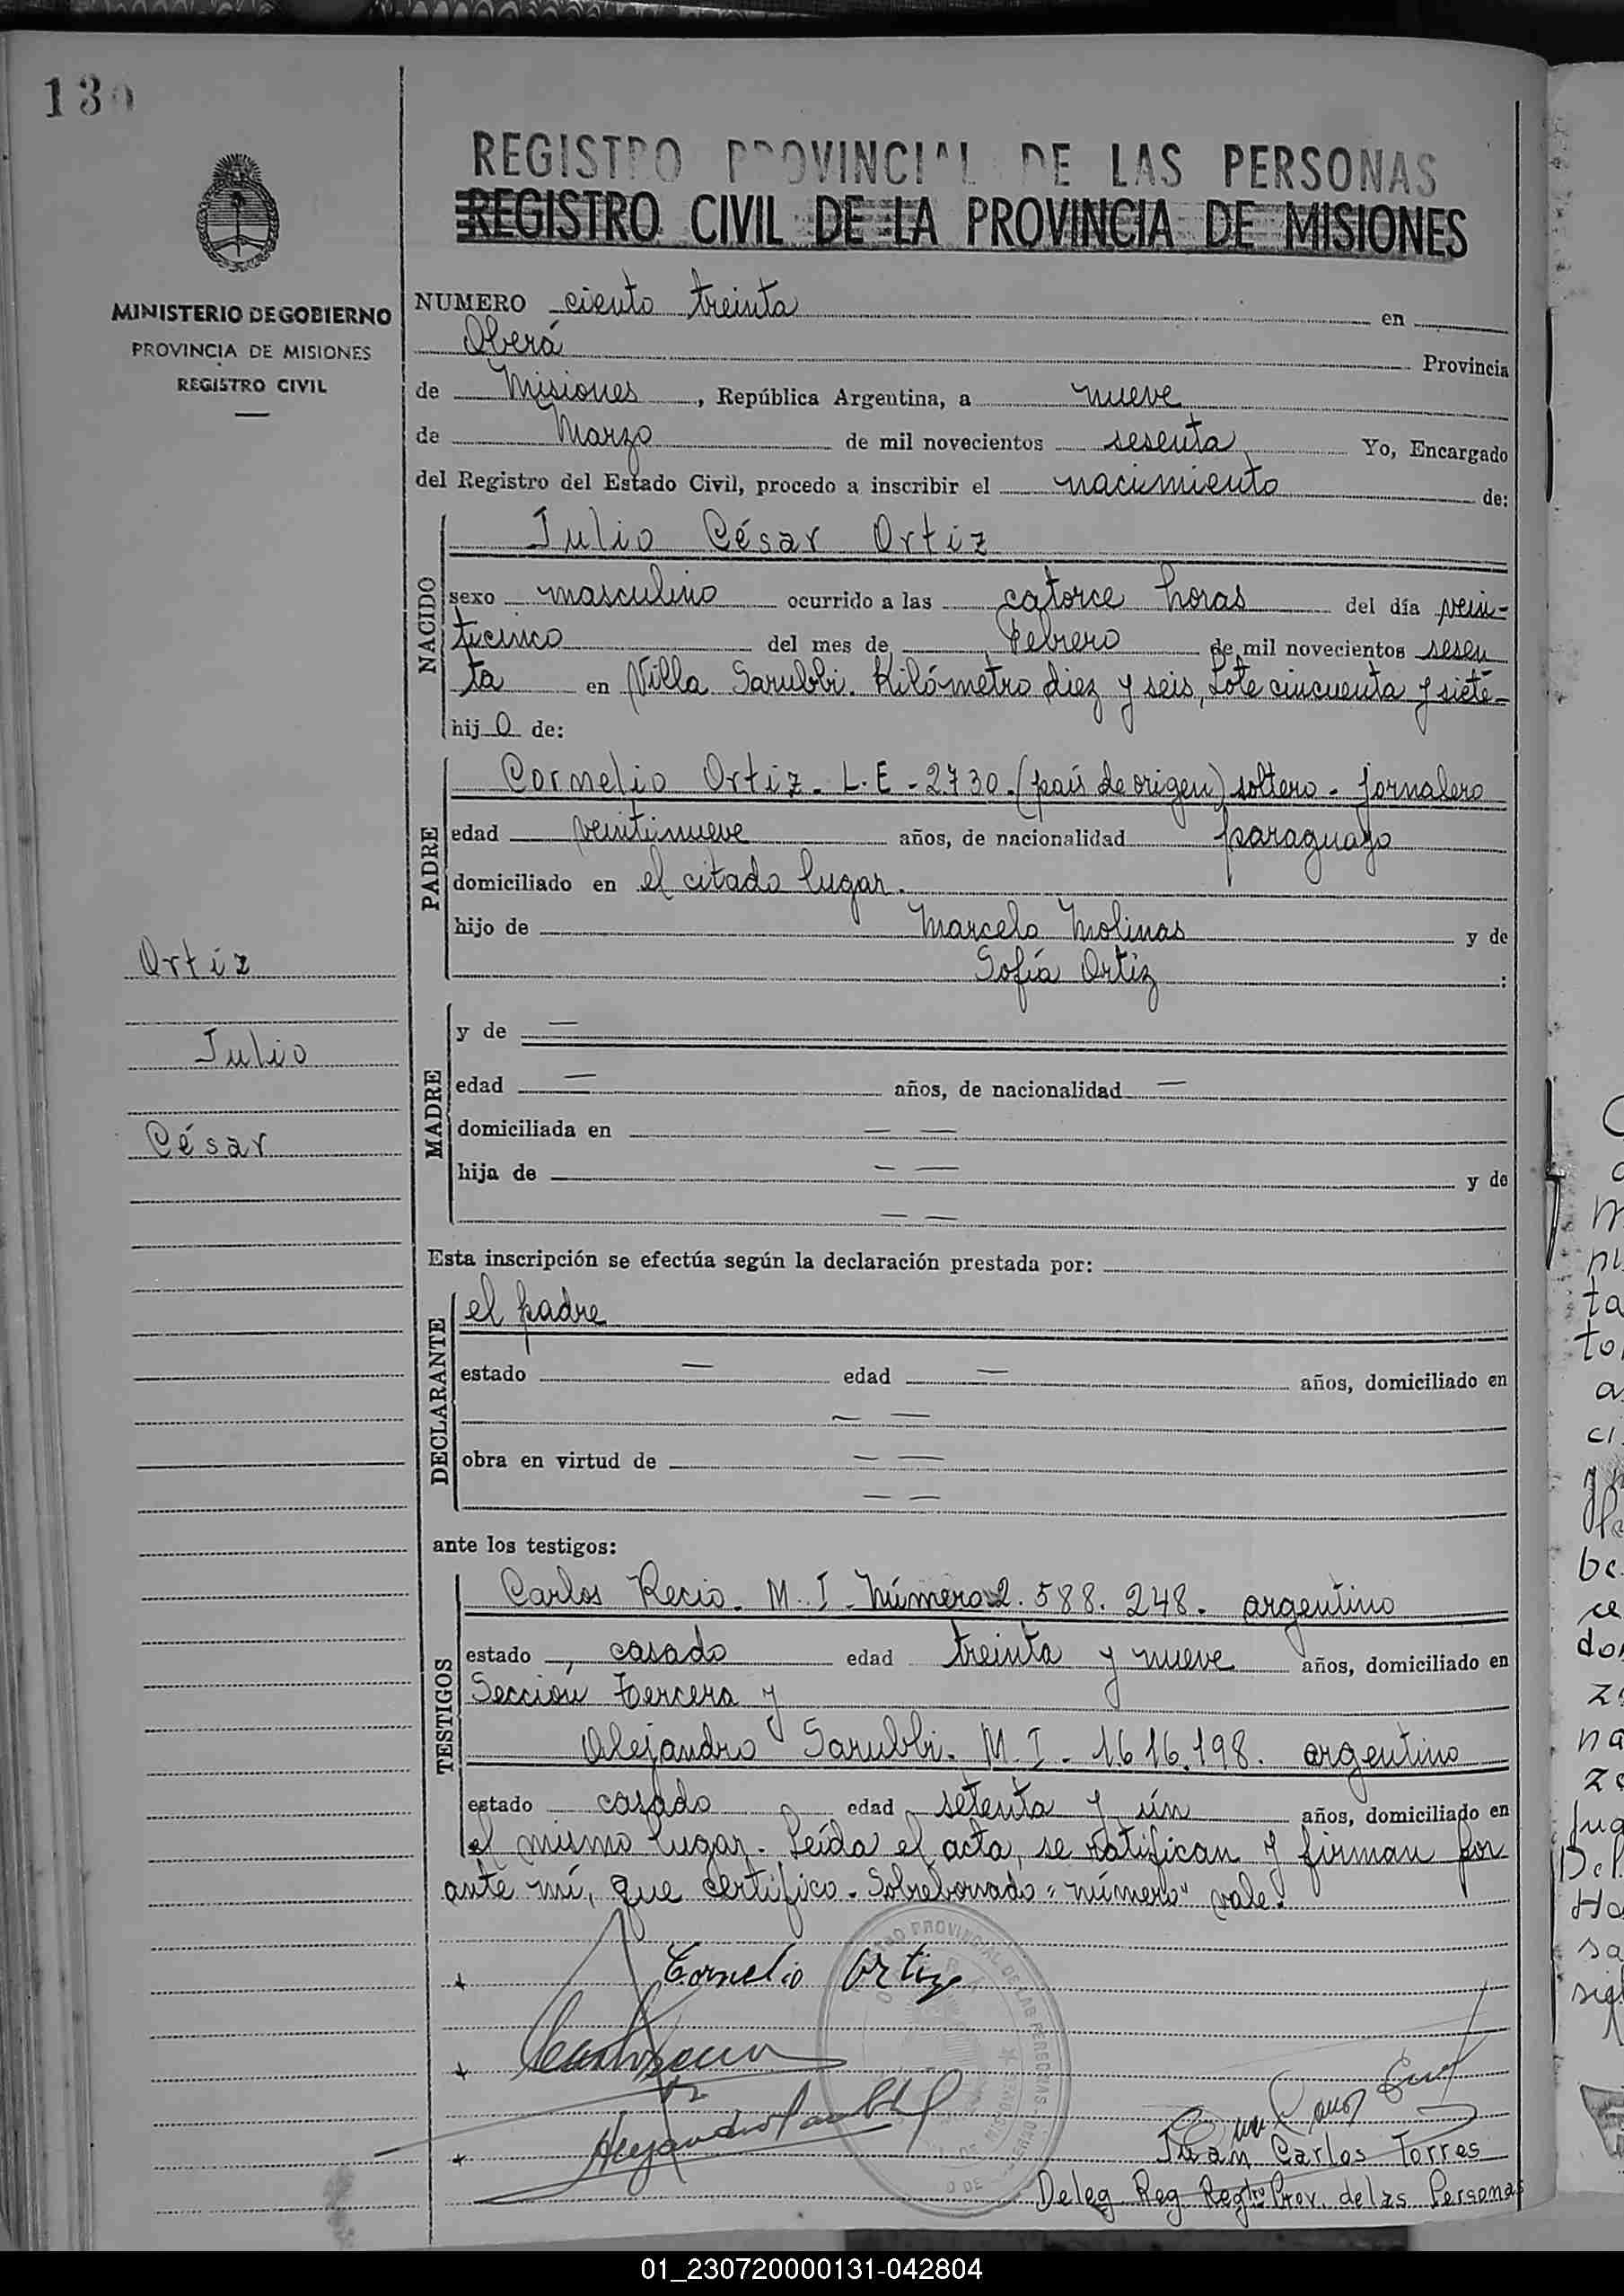 130
REGISTRO PROVINCIAL DE LAS PERSONAS
REGISTRO CIVIL DE LA PROVINCIA DE MISIONES
MINISTERIO DE GOBIERNO
PROVINCIA DE MISIONES
REGISTRO CIVIL
NUMERO ciento treinta en
Oberá Provincia
de Misiones, República Argentina, a nueve
de Marzo de mil novecientos sesenta Yo, Encargado
del Registro del Estado Civil, procedo a inscribir el nacimiento de:
NACIDO
Julio César Ortiz
sexo masculino ocurrido a las catorce horas del día vein-
ticinco del mes de Febrero de mil novecientos sesen
ta en Villa Sarubbi. Kilómetro diez y seis, Lote cincuenta y siete-
hijo de:
PADRE
Cornelio Ortiz. L.E - 2730. (país de origen) soltero - jornalero
edad veintinueve años, de nacionalidad paraguayo
domiciliado en el citado lugar.
hijo de Marcelo Molinas y de
Sofía Ortiz :
Ortiz
Julio
César
MADRE
y de —
edad — años, de nacionalidad —
domiciliada en — —
hija de — — y de
— —
Esta inscripción se efectúa según la declaración prestada por:
DECLARANTE
el padre
estado — edad — años, domiciliado en
— —
obra en virtud de — —
— —
ante los testigos:
TESTIGOS
Carlos Recio. M. I - Número 2.588.248. argentino
estado casado edad treinta y nueve años, domiciliado en
Sección tercera y
Alejandro Sarubbi. M. I - 1.616.198. argentino
estado casado edad setenta y ún años, domiciliado en
el mismo lugar. Leída el acta, se ratifican y firman por
ante mí, que certifico. Sobreborrado "número" vale.
Cornelio Ortiz
Alejandro Sarubbi
Juan Carlos Torres
Deleg Reg Regtro Prov. de las Personas
01_230720000131-042804